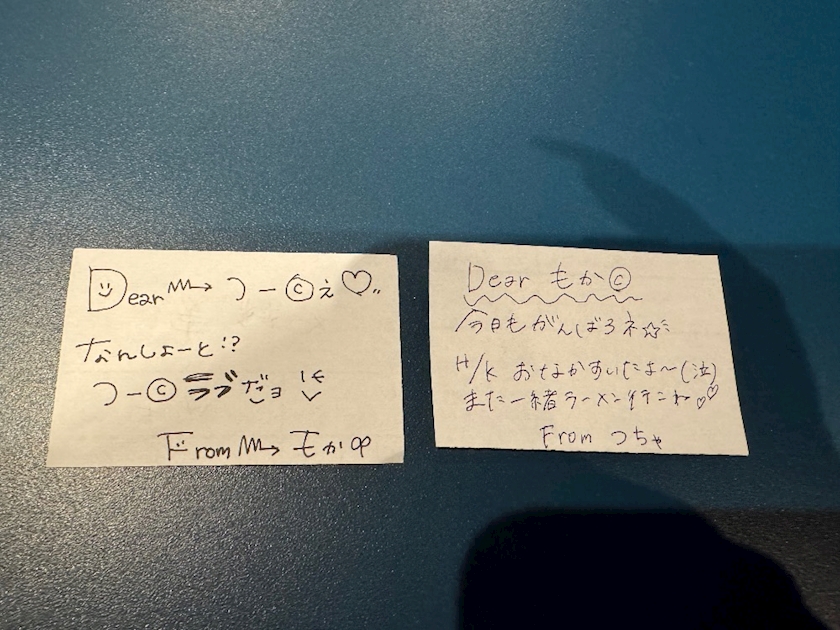 Dear つーⓒえ♡
なんしょーと!?
つーⓒラブだョ
From もか
Dear もかⓒ
今日もがんばろネ☆
H/K おなかすいたよ〜(泣)
また一緒ラーメン行こね♡♡
From つちゃ